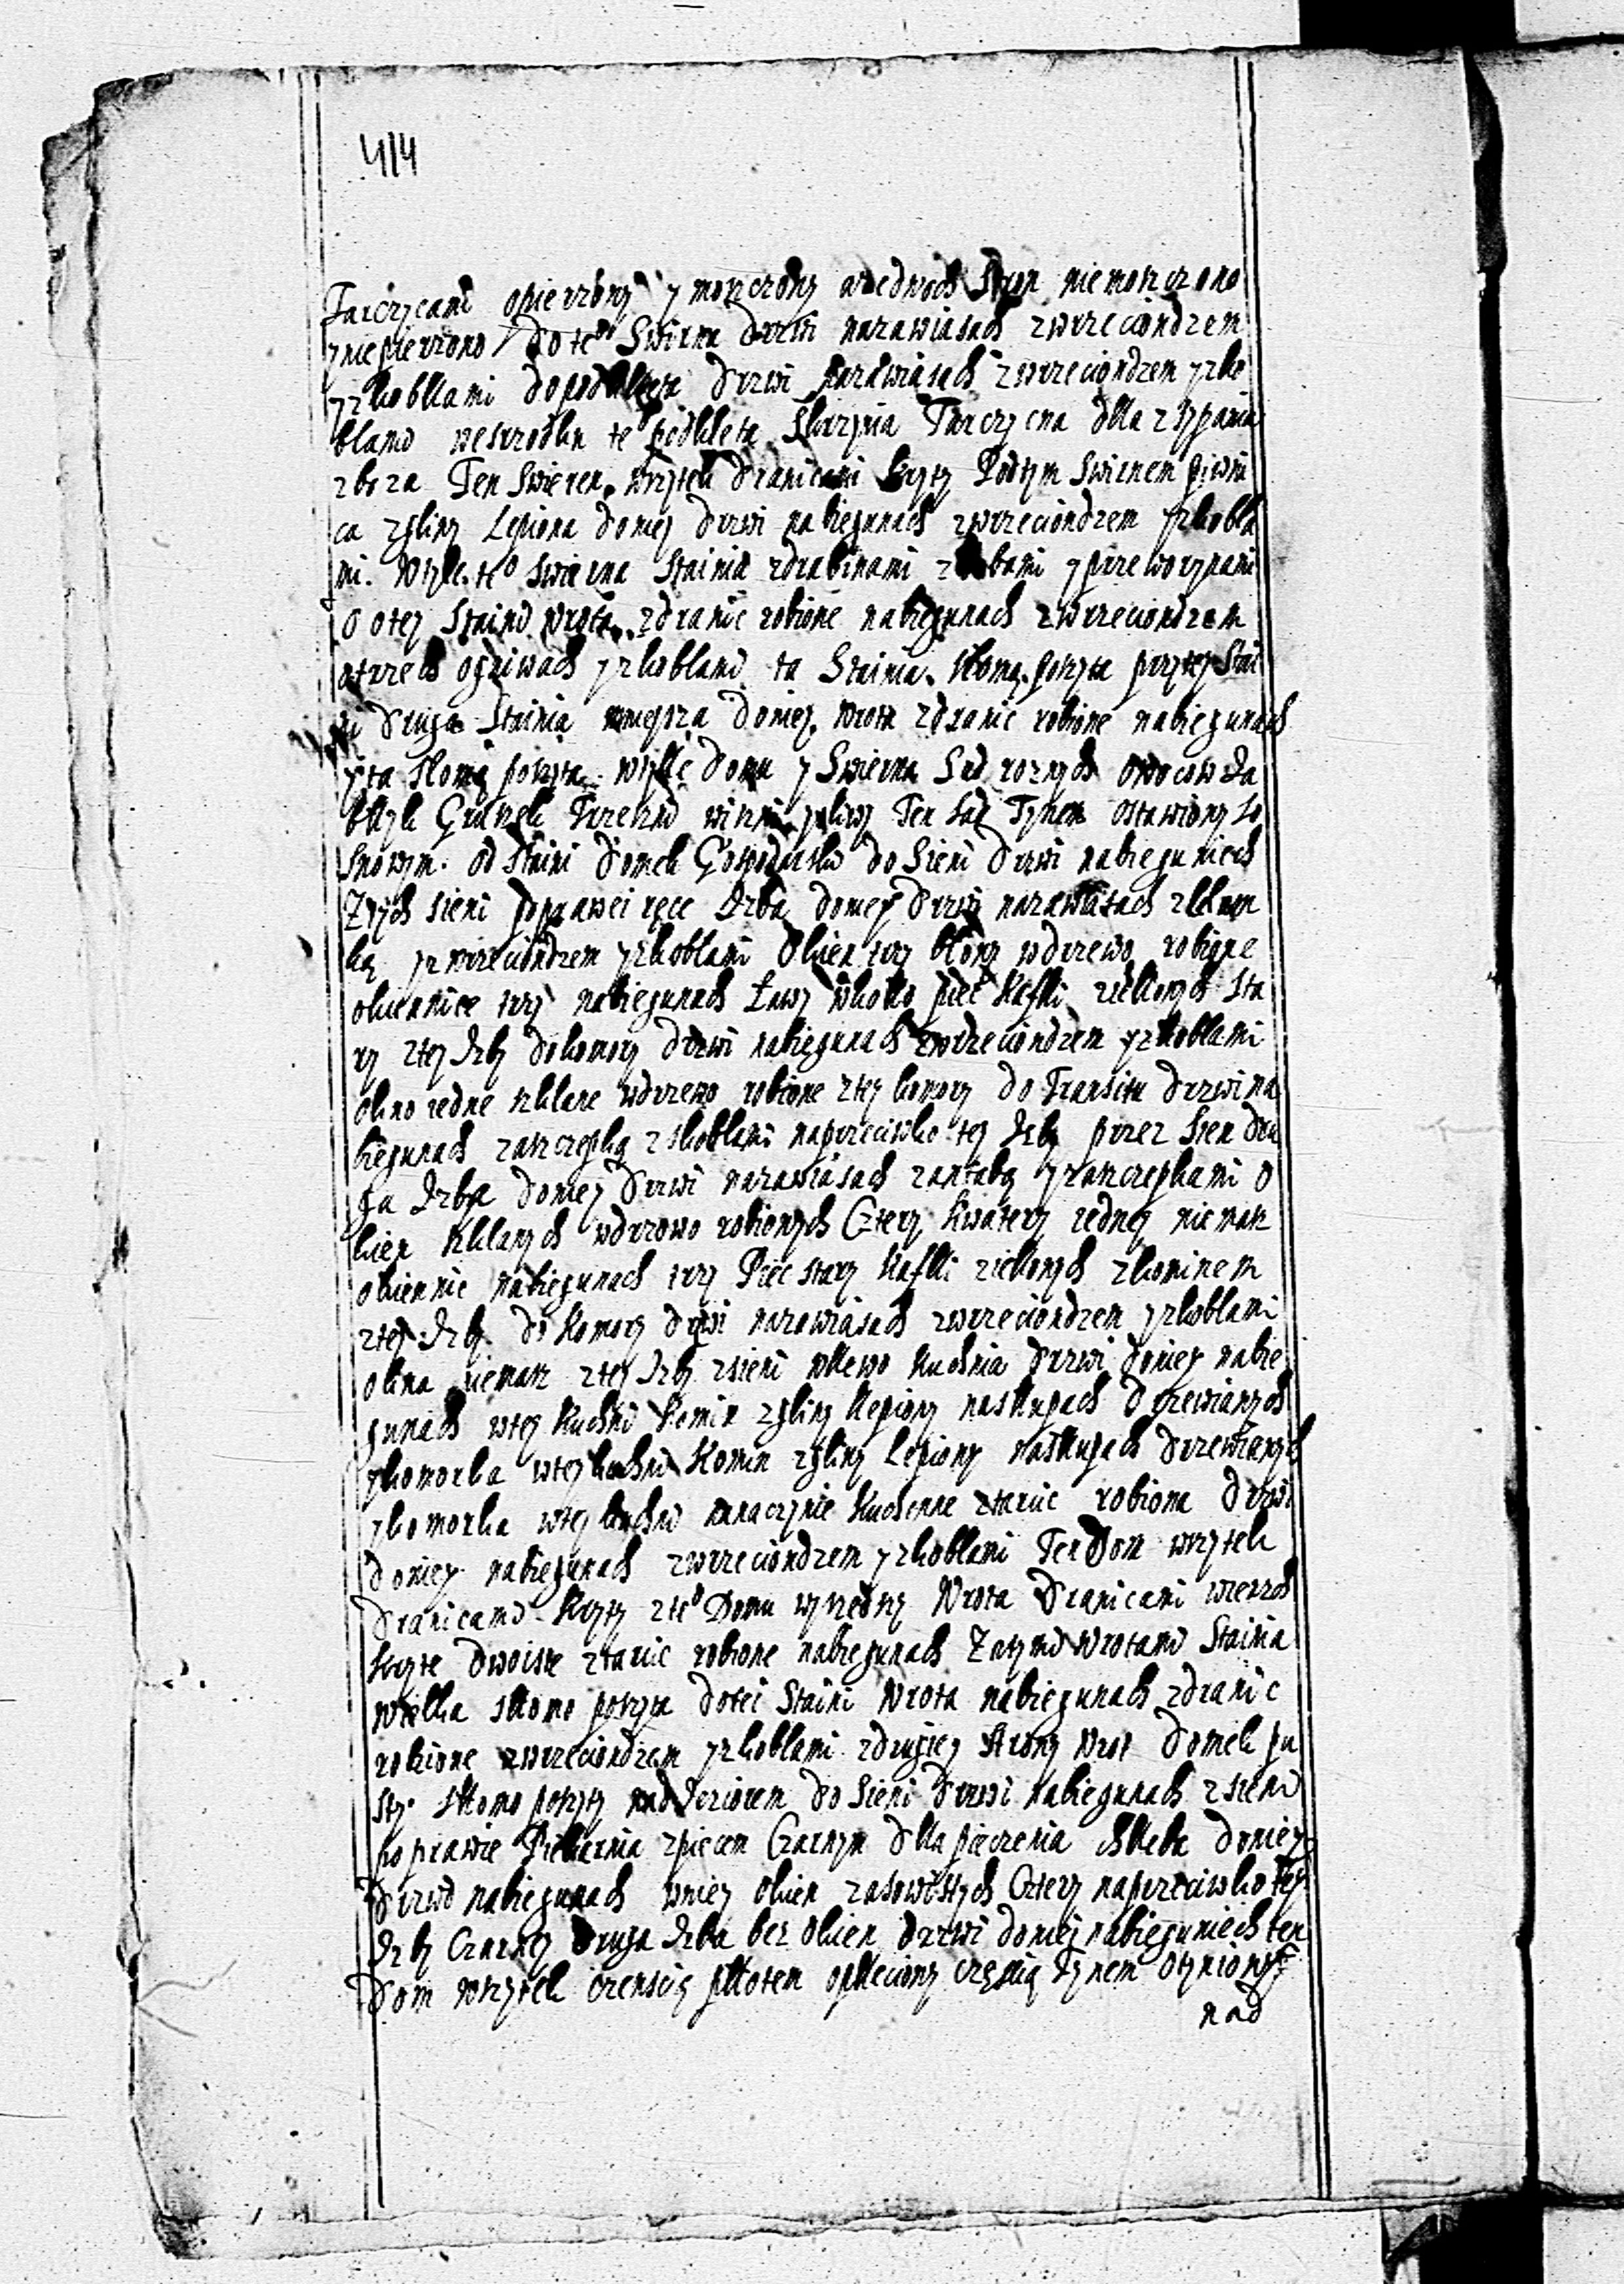 414
Tarczycami opierzony y moszczony wiednoch Stron niemoszczono
ynie pierzono Do te° Swirna drzwi nazawiasach zwrzeciondzem
yzkobllami do podkleta Drzwi nazawiasach zwrzeciondzem yzko
blami wesrzodku te° podkleta Skrzynia Tarczycna dlla zsypania
zboza Ten Swieren wszytek dranicami kryty Podtym Swirnem piwni
ca zgliny Lepiona doniey drzwi nabiegunach zwrzeciondzem yzkobla
mi. Wtyle te° Swierna Stainia zdrabinami zzlobami yprzeworynami
Dotey Staini Wrota zdranic robione nabiegunach zwrzeciondzem
otrzech ogniwach yzkoblami ta Stainia Słomą potryta przytey Stai
ni Druga Stainia mnieysza doniey Wrota zdranic robione nabiegunach
yta słomą potryta wtylle domu y Swierna Sad roznych owocow Ja
bllyk Gruszek Trzeszni wiszni ysliwy Ten Sad Tynem ostawiony So
snowym. Od Staini Domek Gospodarski do Sieni drzwi nabieguniech
Ztych sieni poprawei ręce Izba doniey drzwi nazawiasach zklam
ką yzwrzeciondzem yzkoblami Okien trzy błony wdrzewo robione
okiennice trzy nabiegunach Ławy wkoło piec Kafłi zielonych Sta
ry ztey Izby dokomory drzwi nabiegunach zwrzeciondzem yzkoblami
Okno iedne szklane wdrzewo robione ztey komory do Transitu drzwi na
biegunach zaszczepką zskoblami naprzeciwko tey Izby przez Sien dru
ga Izba doniey drzwi nazawiasach zantabą yzaszczepkami O
kien szklanych wdrzowo robionych Cztery kwatery iedney niemasz
okiennic nabiegunach trzy Piec stary Kafłi zielonych zkominem
ztey Izby do Komory drzwi nazowiasach zwrzeciondzem yzkoblami
okna niemasz ztey Izby zsieni wllewo Kuchnia drzwi doniey nabie
gunach wtey Kuchni Komin zgliny llepiony nasłupach drzewianych
ykomorka wtey kuchni Komin zgliny Lepiony nasłupach drzewianych
ykomorka wtey kuchni nanaczynie Kuchenne ztarcic robiona drzwi
doniey nabiegunach zwrzeciondzem yzkoblami Ten Dom wszytek
dranicami kryty zte° Domu wyszedszy Wrota Dranicami wierzch
kryte dwoiste ztarcic robione nabiegunach Zatymi Wrotami Stainia
wielka słłomo potryta dotei Staini Wrota nabiegunach zdranic
robione zwrzeciondzem yzkoblami zdrugiey strony Wrot Domek pu
sty słłomo potryty nad Jeziorem do Sieni drzwi nabiegunach zsieni
poprawie Piekarnia zpiecem Czarnym dlla pieczenia chlleba doniey
drzwi nabiegunach wniey okien zasowistych Cztery naprzeciwko tey
Izby Czarney Druga Izba bez okien drzwi doniey nabieguniech ten
Dom wszytek czenscią płłotem oplleciony częscią Tynem otyniony
nad